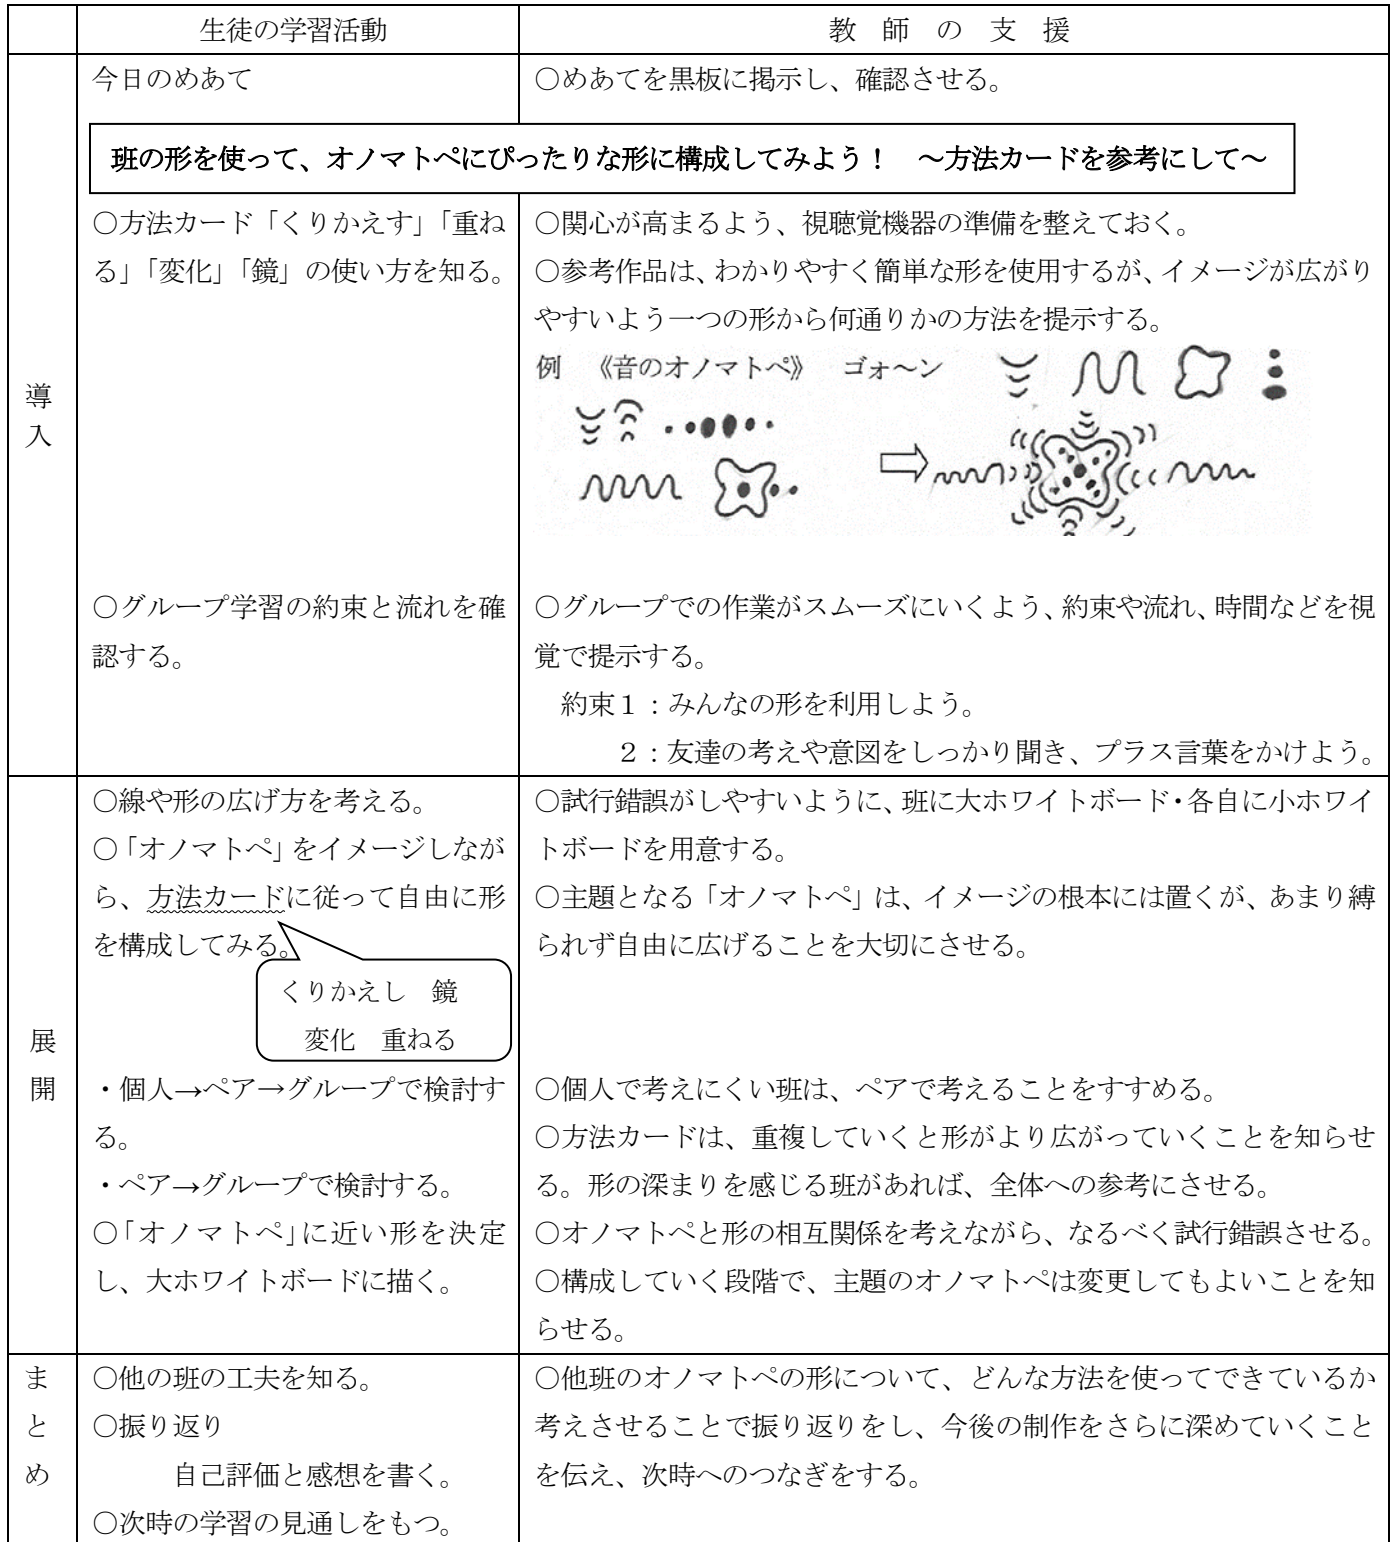 生徒の学習活動
教 師 の 支 援
導
入
今日のめあて
○めあてを黒板に掲示し、確認させる。
班の形を使って、オノマトペにぴったりな形に構成してみよう！　～方法カードを参考にして～
○方法カード「くりかえす」「重ね
る」「変化」「鏡」の使い方を知る。
○関心が高まるよう、視聴覚機器の準備を整えておく。
○参考作品は、わかりやすく簡単な形を使用するが、イメージが広がり
やすいよう一つの形から何通りかの方法を提示する。
例　《音のオノマトペ》　ゴォ～ン
○グループ学習の約束と流れを確
認する。
○グループでの作業がスムーズにいくよう、約束や流れ、時間などを視
覚で提示する。
約束１：みんなの形を利用しよう。
２：友達の考えや意図をしっかり聞き、プラス言葉をかけよう。
展
開
○線や形の広げ方を考える。
○「オノマトペ」をイメージしなが
ら、方法カードに従って自由に形
を構成してみる。
くりかえし　鏡
変化　重ねる
・個人→ペア→グループで検討す
る。
・ペア→グループで検討する。
○「オノマトペ」に近い形を決定
し、大ホワイトボードに描く。
○試行錯誤がしやすいように、班に大ホワイトボード・各自に小ホワイ
トボードを用意する。
○主題となる「オノマトペ」は、イメージの根本には置くが、あまり縛
られず自由に広げることを大切にさせる。
○個人で考えにくい班は、ペアで考えることをすすめる。
○方法カードは、重複していくと形がより広がっていくことを知らせ
る。形の深まりを感じる班があれば、全体への参考にさせる。
○オノマトペと形の相互関係を考えながら、なるべく試行錯誤させる。
○構成していく段階で、主題のオノマトペは変更してもよいことを知
らせる。
ま
と
め
○他の班の工夫を知る。
○振り返り
自己評価と感想を書く。
○次時の学習の見通しをもつ。
○他班のオノマトペの形について、どんな方法を使ってできているか
考えさせることで振り返りをし、今後の制作をさらに深めていくこと
を伝え、次時へのつなぎをする。